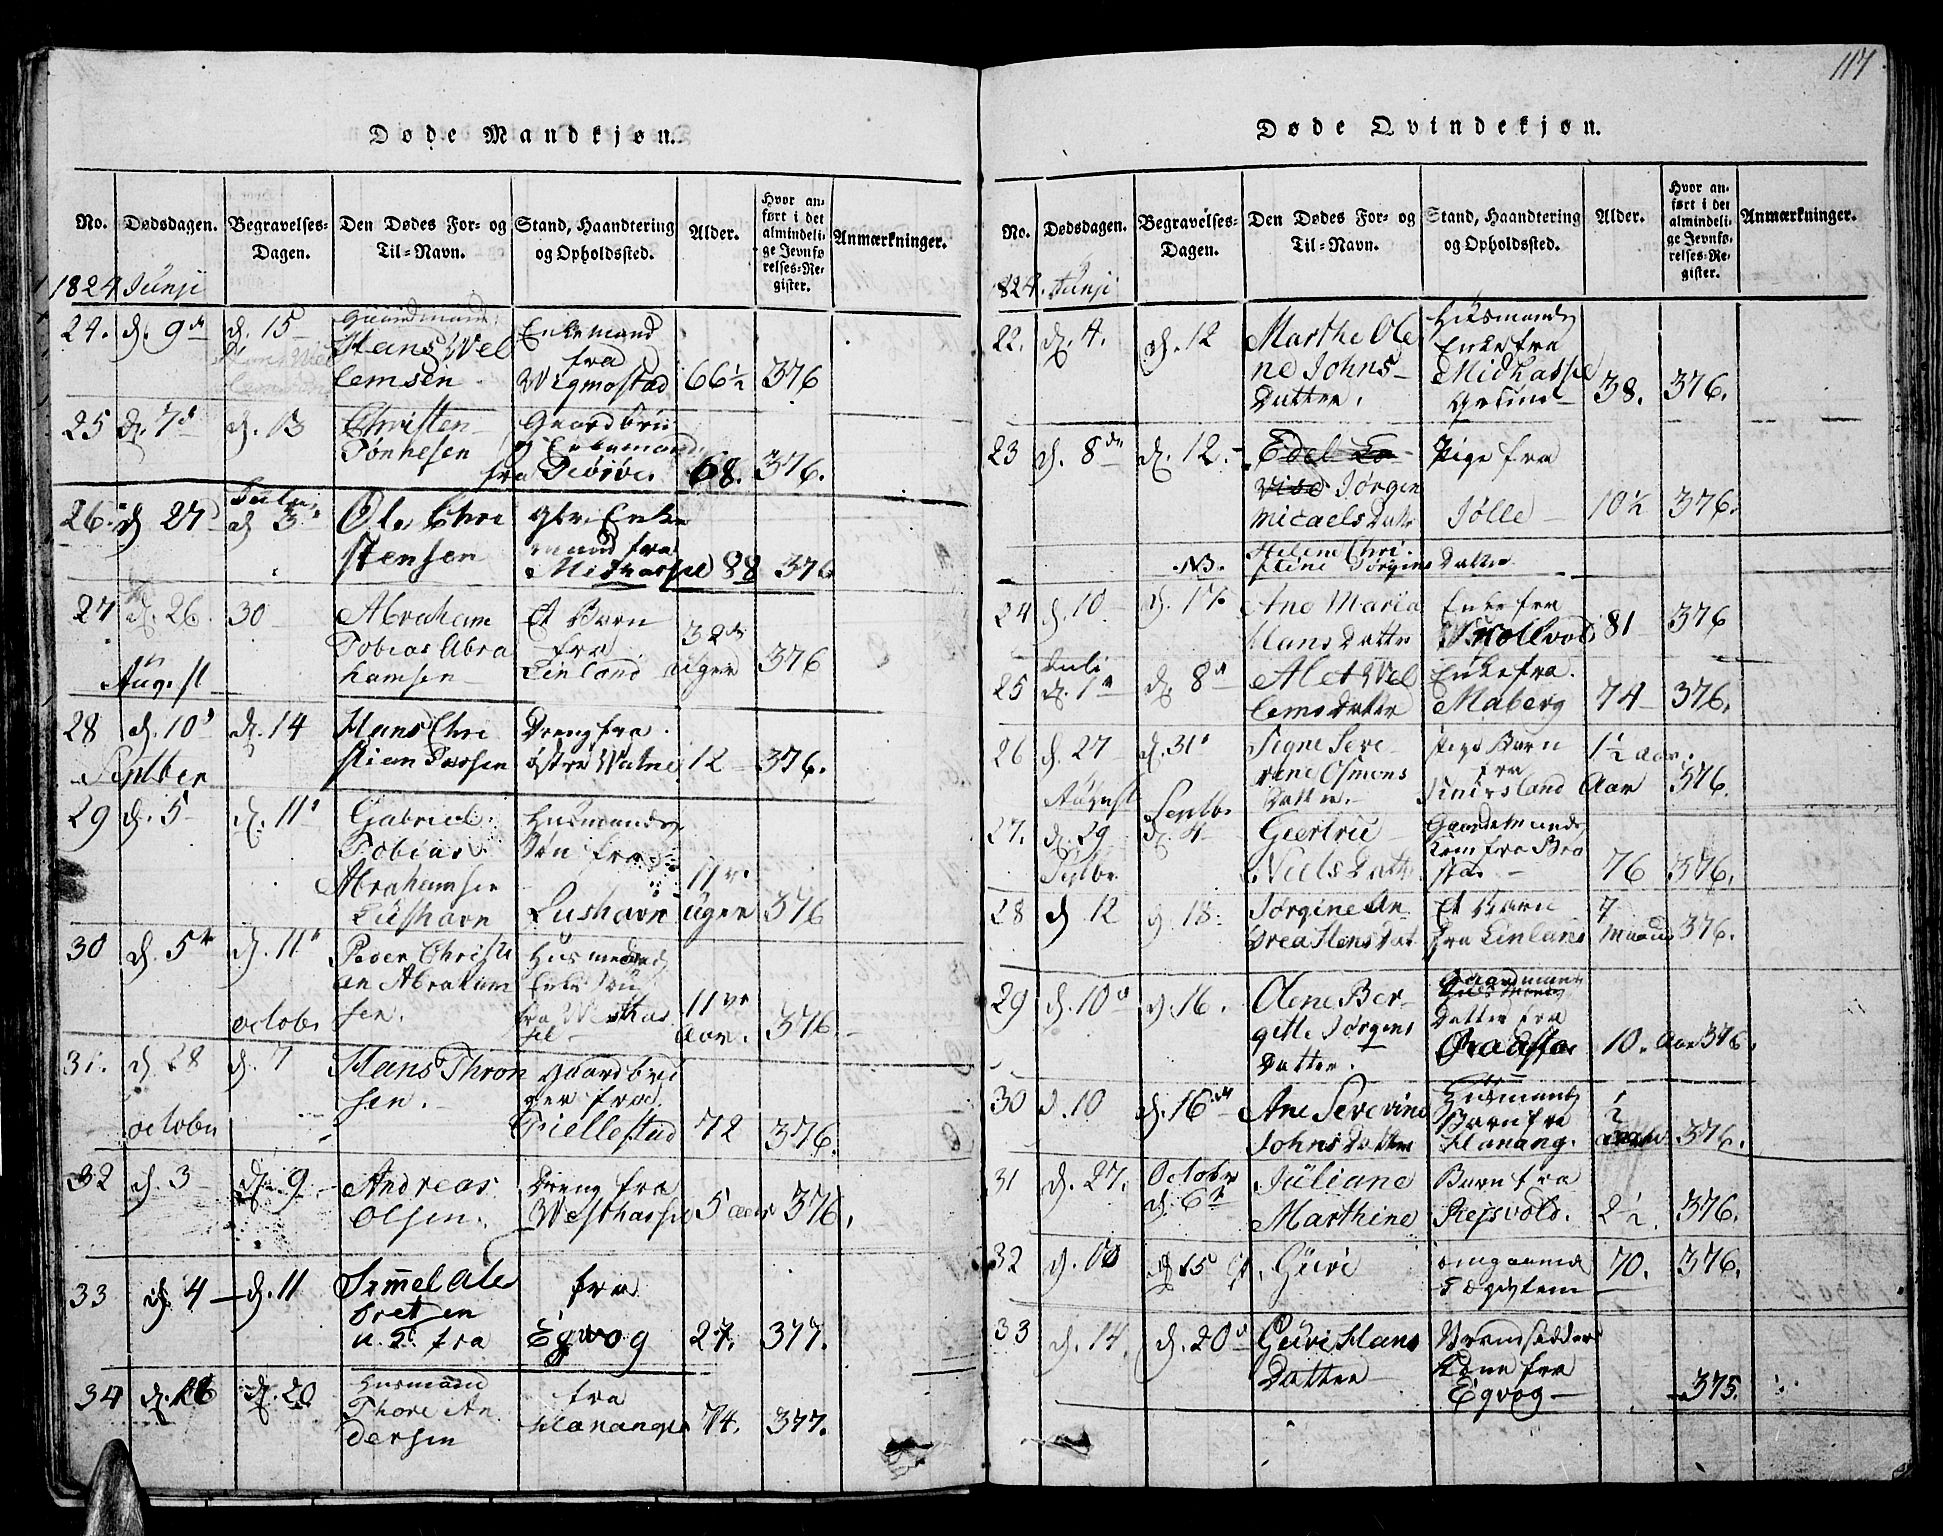 117
Døde Mandkjøn.
No. Dødsdagen. Begravelses-Dagen. Den Dødes For- og Til-Navn. Stand, Haandtering og Opholdssted. Alder. Hvor anført i det almindelige Jevnførelses-Register. Anmærkninger.
1824 Junji
24. d. 9de d. 15 Gaardmand
Hans Wel Enkemand
lemsen fra
Wigmostad 66½ 376
25 d. 7d d. 13 Christen
Tønnesen Enkemand
fra 68. 376.
Julii
26. d 27d d 3 Ole Chri Enke
stensen mand fra
Midhassel 88 376
27 d. 26. 30 Abraham Et Barn
Tobias Abra fra 32
hamsen Linland Uger 376
August
28 d. 10d d. 14 Hans Chri Dreng fra
stian Larsen østre Watne 12 376.
Septber
29 d. 5 d. 11d Gabriel Husmands
Tobias Søn fra
Abrahamsen 11
Lushavn Lushavn Uger 376
30 d. 5te d. 11d Peder Christi Husmands
an Abraham Enke Søn
sen. fra Westhas 11
sel Aar. 376
octobr
31. d 28 d. 7 Hans Thron gaardbru
sen. ger fra
Fiellestad 72 376.
octobr
32 d. 3 d. 9. Andreas Dreng fra
Olsen. Westhassel 5 aar 376.
33 d. 4 d. 11 fra
u. S. fra Egvog 27. 377.
34 d. 16 d. 20 Husmand fra
Thore An Hanangs 74. 377.
dersen
Døde Qvindekjøn.
No. Dødsdagen. Begravelses-Dagen. Den Dødes For- og Til-Navn. Stand, Haandtering og Opholdssted. Alder. Hvor anført i det almindelige Jevnførelses-Register. Anmærkninger.
1824. Junji
22. d. 4. d. 12 Marthe Ole Husmands
ne Johns Enke fra
Datter. Midhassel
Grund 38. 376.
23 d. 8de d. 12. Edel Lo Pige fra
vise Jørgen
Micaels Datr Jølle 10½ 376.
NB. Helene Chri
stine Jørgens Datter
24 d. 10 d. 17. Ane Maria Enke fra
Hans Datter Skollvold 81 376
Juli
25 d. 1te d. 8d Alet Wel Enke fra
lems datter Maberg 74 376.
26 d. 27 d. 31d Signe Seve Barn 1½ aar.
rine Osmons fra
Datter. Snirsland Aar 376.
August Septbr
27. d. 29 d. 4 Geertrue Gaardmands
Niels Datt Kone fra Bra
stad 76 376.
Septbr
28 d 12 d. 18. Jørgine An Et Barn 7
drea Stens Dat fra Linland Maaned 376.
29 d. 10d d. 16. Olene Ber Gaardmands
gitte Jørgens Datter fra
Datter. 10. Aar 376.
30 d. 10 d. 16de Ane Severine Husmands ½
Johns Datter Barn fra
Hanang. 376.
31 d. 27. October d. 6te Juliane Barn fra
Marthine Rejsvold. 2½. 376.
32 d. 10 d. 15 Guri omgaaende
Lægdslem 70. 376.
33 d. 14. d. 20d Guri Hans
Datter Kone fra
Egvog 375.